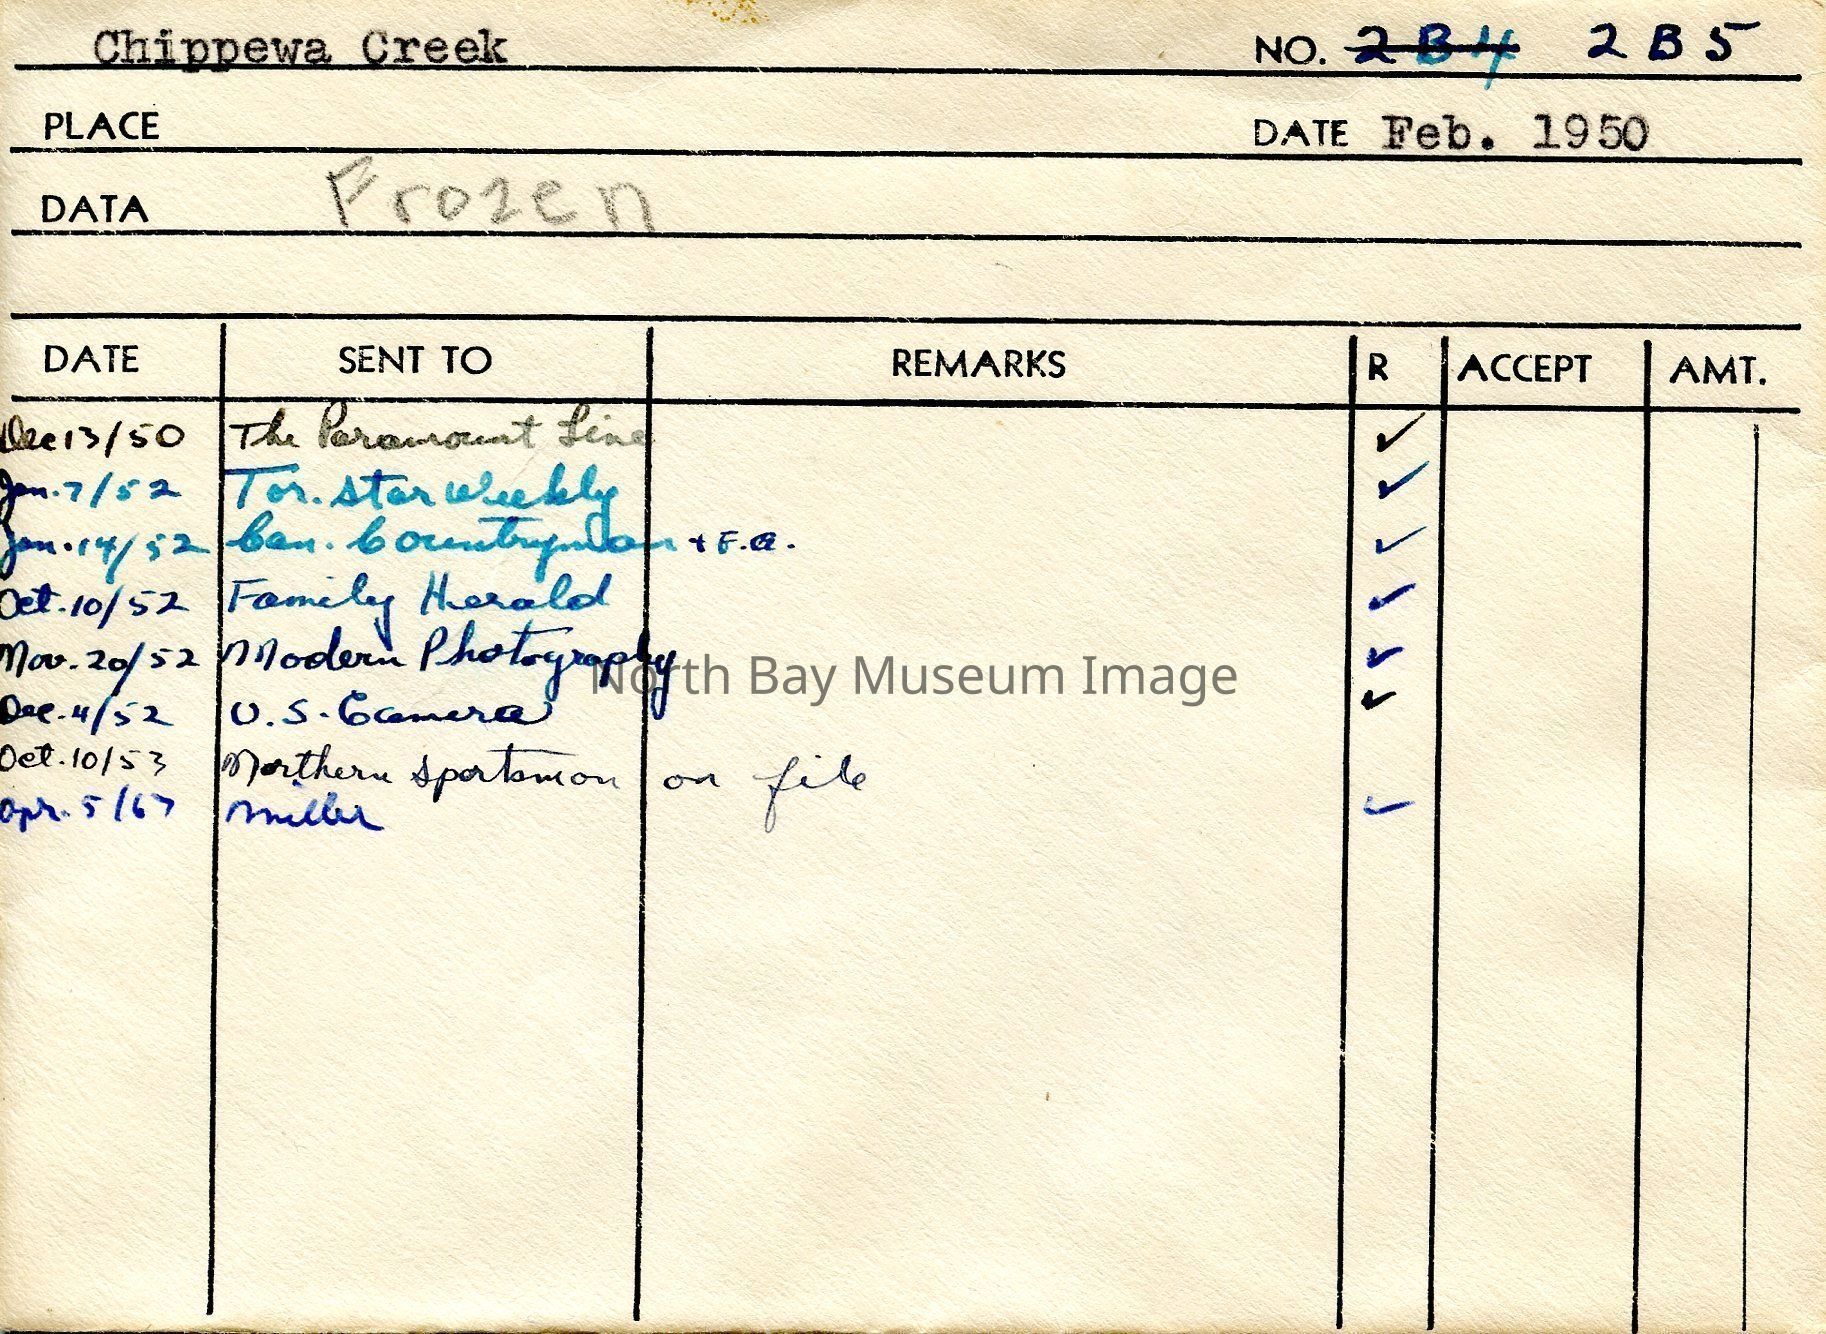 Chippewa Creek NO. 2B4 2B5
PLACE DATE Feb. 1950
DATA Frozen
DATE SENT TO REMARKS R ACCEPT AMT.
Dec 13/50 The Paramount Line ✓
Jan. 7/52 Tor. Star Weekly ✓
Jan. 14/52 Can. Countryman + F.A. ✓
Oct. 10/52 Family Herald ✓
Nov. 20/52 Modern Photography ✓
North Bay Museum Image
Dec. 4/52 U.S. Camera ✓
Oct. 10/53 Northern Sportsman on file
Apr. 5/67 Miller ✓